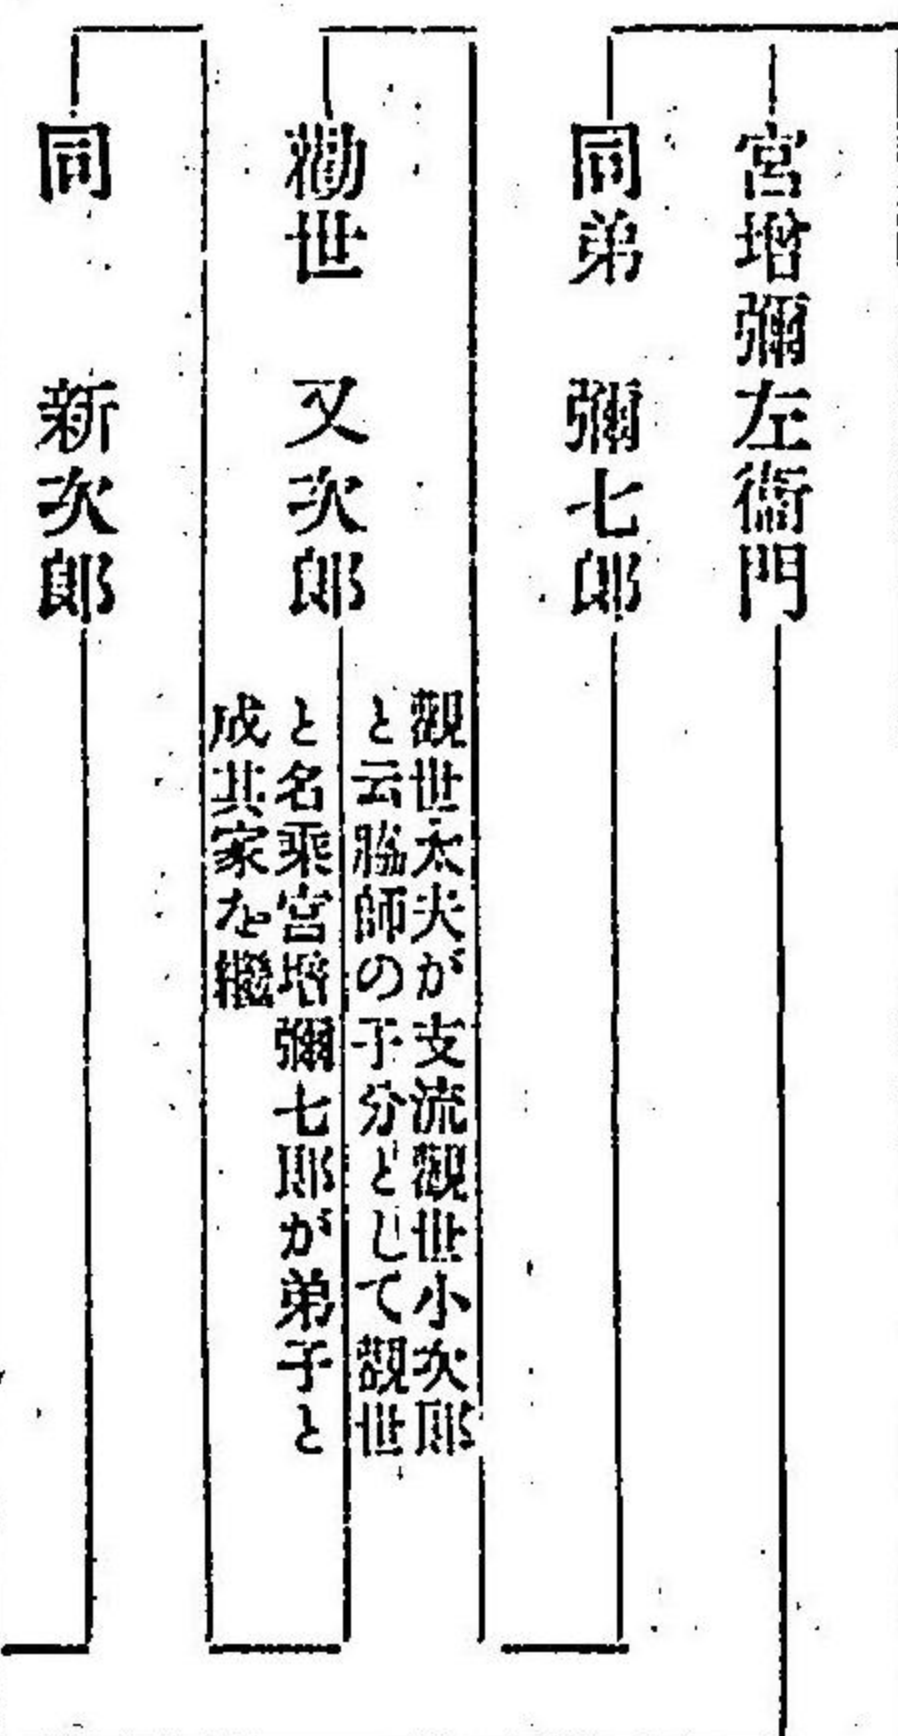 宮增彌左衞門
同弟　彌七郎
勸世　又次郎
觀世太夫が支流觀世小次郎
と云脇師の子分として觀世
と名乘宮增彌七郎が弟子と
成其家を繼
同　新次郎